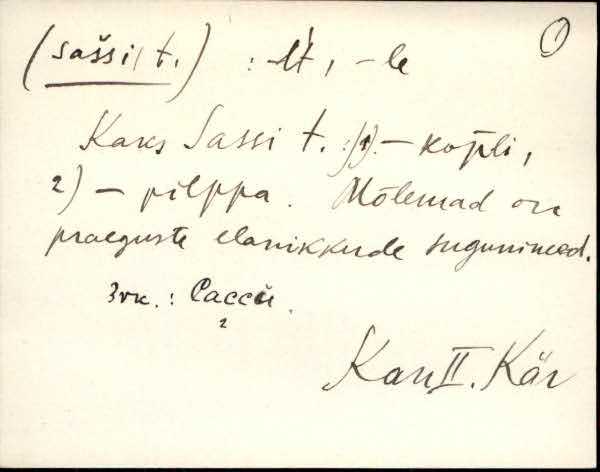 (sašsi, t.) : -lt, -le
Kaks Sassi t. : 1) - kopli,
2) - pilppa. Mõlemad on
praeguste elanikkude sugunimed.
3vk. : Сасси.
2
Kan II. Kär